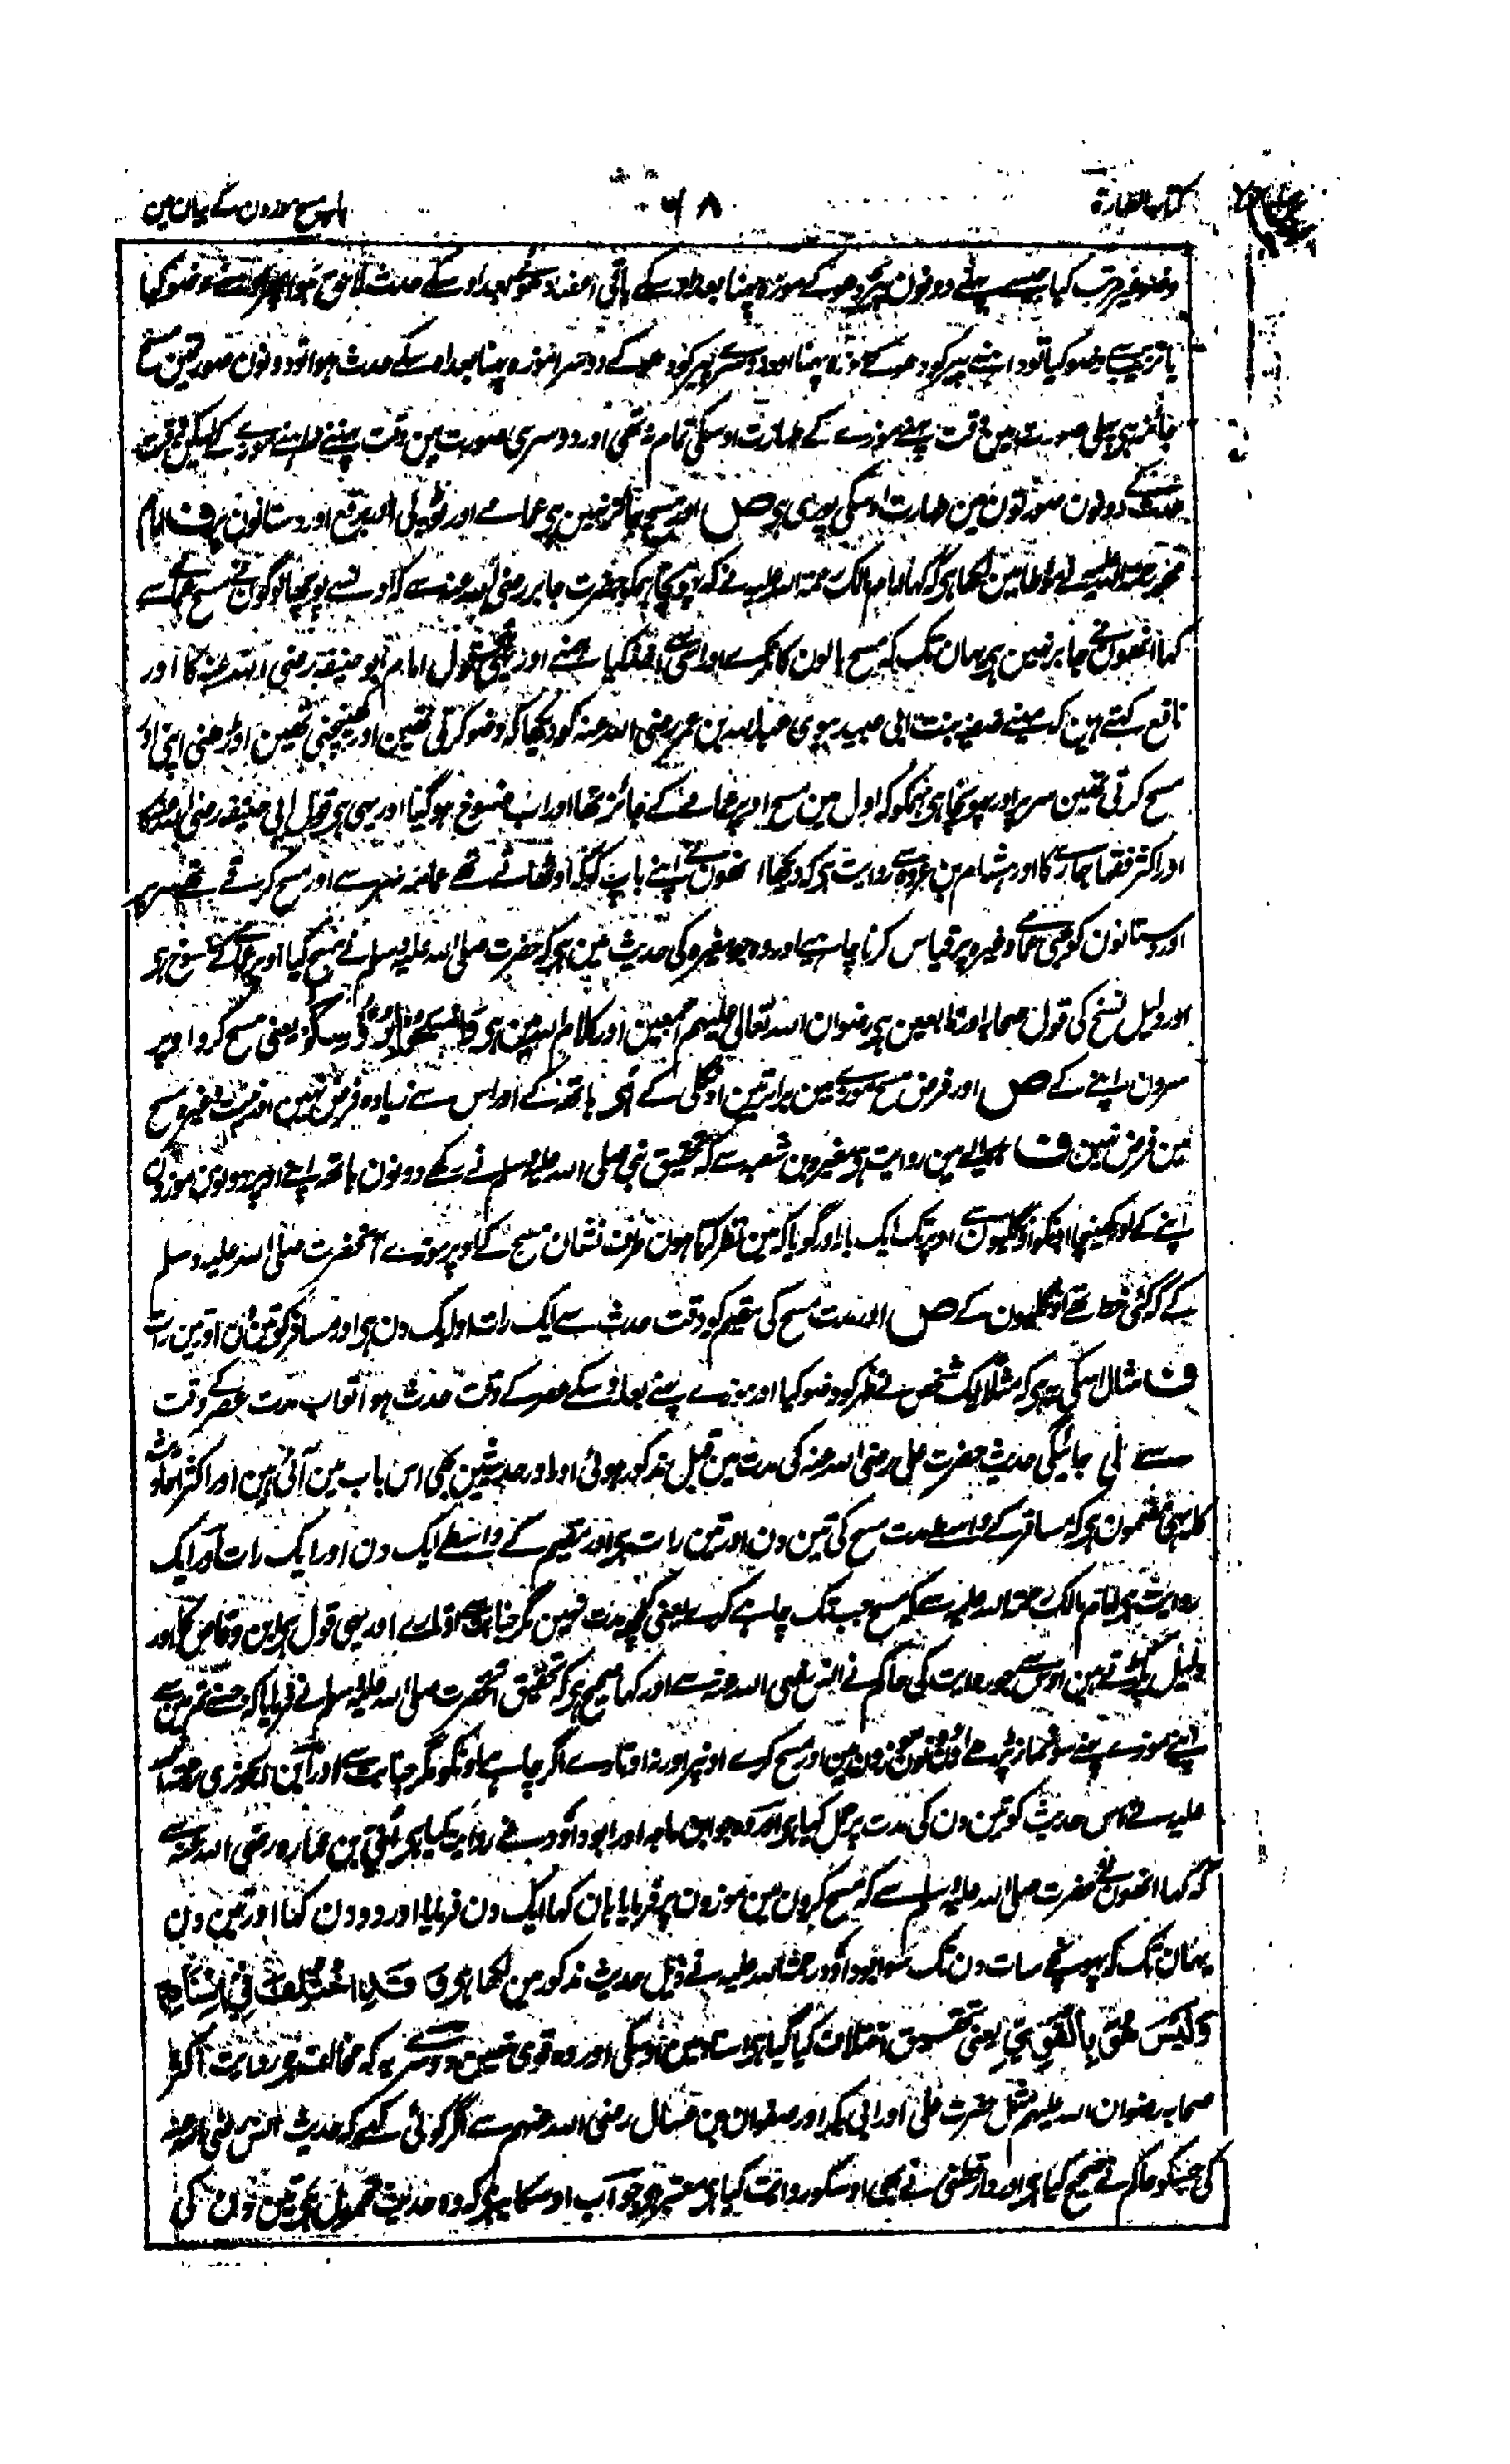 کتاب الطہارۃ
۷۸
باب مسح موزون کے بیان مین
وضو غیر مرتب کیا جیسے پہلے دونون پیر دھو کے موزہ پہنا بعد اوسکے باقی اعضا دھوئے بعد اوسکے حدث لاحق ہوا وضو کیا
یا ترتیب سے وضو کیا تو داہنے پیر کو دھو کے موزہ پہنا اور دوسرے پیر کو دھو کے دوسرا موزہ پہنا بعد اوسکے حدث ہوا تو دونون صورتین مسح
جائز ہی پہلی صورت مین وقت پہننے موزے کے طہارت اوسکی تمام نہ تھی اور دوسری صورت مین وقت پہننے داہنے موزے کے لیکن وقت
حدث کے دونون صورتون مین طہارت اوسکی پوری ہی ص اور مسح جائز نہین ہی عمامے اور ٹوپی اور برقع اور دستانون پر ف امام
محمد رحمۃ اللہ علیہ نے موطا مین لکھا ہی کہ کہا امام مالک رحمۃ اللہ علیہ نے کہ پہونچا ہمکو حضرت جابر رضی اللہ عنہ سے کہ اونسے پوچھا لوگون نے مسح عمامے سے
کہا انھون نے جائز نہین ہی یہان تک کہ مسح بالون کا کرے اور اسی سے اخذ کیا ہمنے اور یہی قول امام ابو حنیفہ رضی اللہ عنہ کا اور
نافع کہتے ہین کہ مینے صفیہ بنت ابی عبید بیوی عبداللہ بن عمر رضی اللہ عنہ کو دیکھا کہ وضو کرتی تھین اور کھینچتی تھین اوڑھنی اپنی اور
مسح کرتی تھین سر پر اور پہونچا ہی ہمکو کہ اول مین مسح اوپر عمامے کے جائز تھا اور اب منسوخ ہو گیا اور یہی ہی قول ابی حنیفہ رضی اللہ عنہ کا
اور اکثر فقہا ہمارے کا اور ہشام بن عروہ سے روایت ہی کہ دیکھا انھون نے اپنے باپ کو کہ اوٹھاتے تھے عمامہ سر سے اور مسح کرتے تھے سر پر
اور دستانون کو بھی عمامے وغیرہ پر قیاس کرنا چاہیے اور وہ جو مغیرہ کی حدیث مین ہی کہ حضرت صلی اللہ علیہ وسلم نے مسح کیا اوپر عمامے کے منسوخ ہی
اور دلیل نسخ کی قول صحابہ اور تابعین ہی رضوان اللہ تعالی علیہم اجمعین اور کلام اللہ مین ہی وَامْسَحُوْا بِرُءُوْسِكُمْ یعنی مسح کرو اوپر
سرون اپنے کے ص اور فرض مسح موزے مین برابر تین اونگلی کے ہی ہاتھ کے اور اس سے زیادہ فرض نہین اور نیت وغیرہ مسح
مین فرض نہین ف مین روایت ہی مغیرہ بن شعبہ سے کہ تحقیق نبی صلی اللہ علیہ وسلم نے رکھے دونون ہاتھ اپنے اوپر دونون موزون
اپنے کے اور کھینچا اونکو اونگلیون سے اوپر تک ایک بار اور گویا کہ مین نظر کرتا ہون طرف نشان مسح کے اوپر موزے آنحضرت صلی اللہ علیہ وسلم
کے کہ کئی خط تھے اونگلیون کے ص اور مدت مسح کی مقیم کو وقت حدث سے ایک رات اور ایک دن ہی اور مسافر کو تین دن اور تین رات
ف مثال اسکی یہ ہی کہ مثلاً ایک شخص نے ظہر کو وضو کیا اور موزے پہنے بعد اوسکے عصر کے وقت حدث ہوا تو اب مدت عصر کے وقت
سے لی جائیگی حدیث حضرت علی رضی اللہ عنہ کی مدت مین قبل مذکور ہوئی اور اور حدیثین بھی اس باب مین آئی ہین اور اکثر احادیث
کا یہی مضمون ہی کہ مسافر کے واسطے مدت مسح کی تین دن اور تین رات ہی اور مقیم کے واسطے ایک دن اور ایک رات اور ایک
روایت ہی امام مالک رحمۃ اللہ علیہ سے کہ مسح جب تک چاہے کرے یعنی کچھ مدت نہین مگر جنابت سے اوتارے اور یہی قول ہی ابن وقاص کا اور
دلیل پکڑتے ہین اوس سے جو روایت کی حاکم نے انس رضی اللہ عنہ سے اور کہا صحیح ہی کہ تحقیق آنحضرت صلی اللہ علیہ وسلم نے فرمایا کہ جسنے تم مین سے
اپنے موزے پہنے سو نماز پڑھے اون موزون مین اور مسح کرے اونپر اور نہ اوتارے اگر چاہے اونکو مگر جنابت سے اور ابن الجوزی رحمۃ اللہ
علیہ نے اس حدیث کو تین دن کی مدت پر حمل کیا ہی اور وہ جو ابن ماجہ اور ابو داؤد نے روایت کیا ہی ابی بن عمارہ رضی اللہ عنہ سے
کہ کہا انھون نے حضرت صلی اللہ علیہ وسلم سے کہ مسح کرون مین موزون پر فرمایا ہان کہا ایک دن فرمایا اور دو دن کہا اور تین دن
یہان تک کہ پہونچے سات دن تک سو ابو داؤد رحمۃ اللہ علیہ نے ذیل حدیث مذکور مین لکھا ہی وَقَدِ اخْتُلِفَ فِیْ اِسْنَادِهٖ
وَلَیْسَ هُوَ بِالْقَوِیِّ یعنی تحقیق اختلاف کیا گیا ہی اسناد مین اوسکی اور وہ قوی نہین دوسرے یہ کہ مخالف ہی روایت اکثر
صحابہ رضوان اللہ علیہم مثل حضرت علی اور ابی بکر اور صفوان بن عسال رضی اللہ عنہم سے اگر کوئی کہے کہ حدیث انس رضی اللہ عنہ
کی جسکو حاکم نے صحیح کیا ہی اور دارقطنی نے بھی اوسکو روایت کیا ہی معتبر ہی جواب اوسکا یہ ہی کہ وہ حدیث محمول ہی تین دن کی